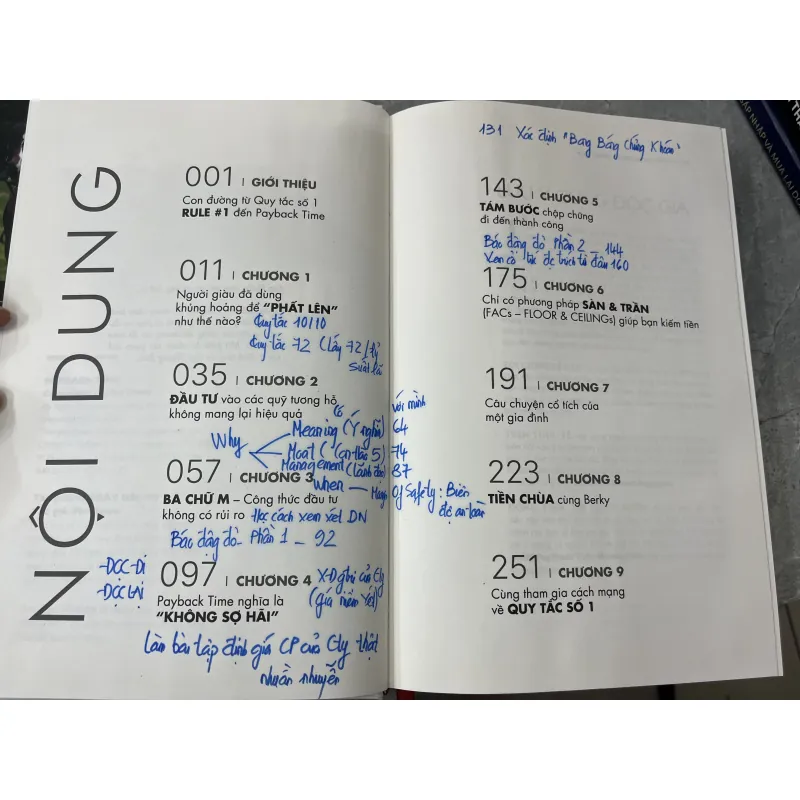 NỘI DUNG
001 | GIỚI THIỆU
Con đường từ Quy tắc số 1
RULE #1 đến Payback Time
011 | CHƯƠNG 1
Người giàu đã dùng
khủng hoảng để “PHẤT LÊN”
như thế nào? Quy tắc 10/10
Quy tắc 72 (Lấy 72/tỷ
suất lãi
035 | CHƯƠNG 2
ĐẦU TƯ vào các quỹ tương hỗ
không mang lại hiệu quả
Có với mình
Why Meaning (Ý nghĩa) 64
Moat ( 5) 74
Management (Lãnh đạo) 87
When Margin Of Safety: Biên
độ an toàn
057 | CHƯƠNG 3
BA CHỮ M – Công thức đầu tư
không có rủi ro Học cách xem xét DN
Bác đặng đỏ - Phần 1 _ 92
-ĐỌC-ĐI
-ĐỌC LẠI
097 | CHƯƠNG 4 X-Đ giá trị của Cty
Payback Time nghĩa là (giá niêm yết)
“KHÔNG SỢ HÃI”
Làm bài tập định giá CP của Cty thật
nhuần nhuyễn
131 Xác định "Bong Bóng Chứng Khoán"
143 | CHƯƠNG 5
TÁM BƯỚC chập chững
đi đến thành công
Bác đặng đỏ Phần 2 _ 144
160
175 | CHƯƠNG 6
Chỉ có phương pháp SÀN & TRẦN
(FACs – FLOOR & CEILINGs) giúp bạn kiếm tiền
191 | CHƯƠNG 7
Câu chuyện cổ tích của
một gia đình
223 | CHƯƠNG 8
TIỀN CHÙA cùng Berky
251 | CHƯƠNG 9
Cùng tham gia cách mạng
về QUY TẮC SỐ 1
THÁP NHẬP VÀ MUA LẠI